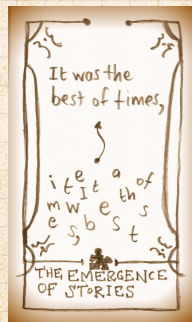 It was the
best of times,
i e a of
t e I t th
m w e s
e s, b s t
THE EMERGENCE
OF STORIES